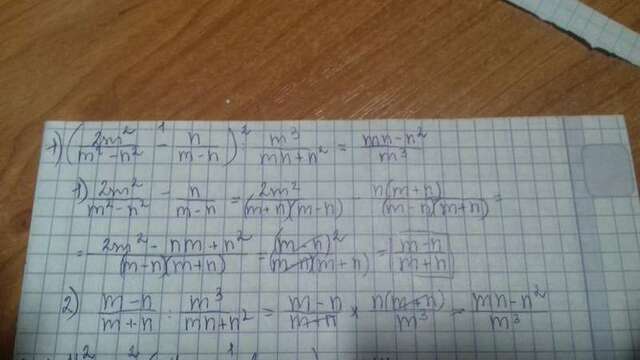 1) (2m²/(m²-n²) -¹ n/(m-n)) :² m³/(mn+n²) = (mn-n²)/m³
1) 2m²/(m²-n²) - n/(m-n) = 2m²/((m+n)(m-n)) - n(m+n)/((m-n)(m+n)) =
= (2m²-nm+n²)/((m-n)(m+n)) = (m-n)²/((m-n)(m+n)) = (m-n)/(m+n)
2) (m-n)/(m+n) : m³/(mn+n²) = (m-n)/(m+n) × n(m+n)/m³ = (mn-n²)/m³